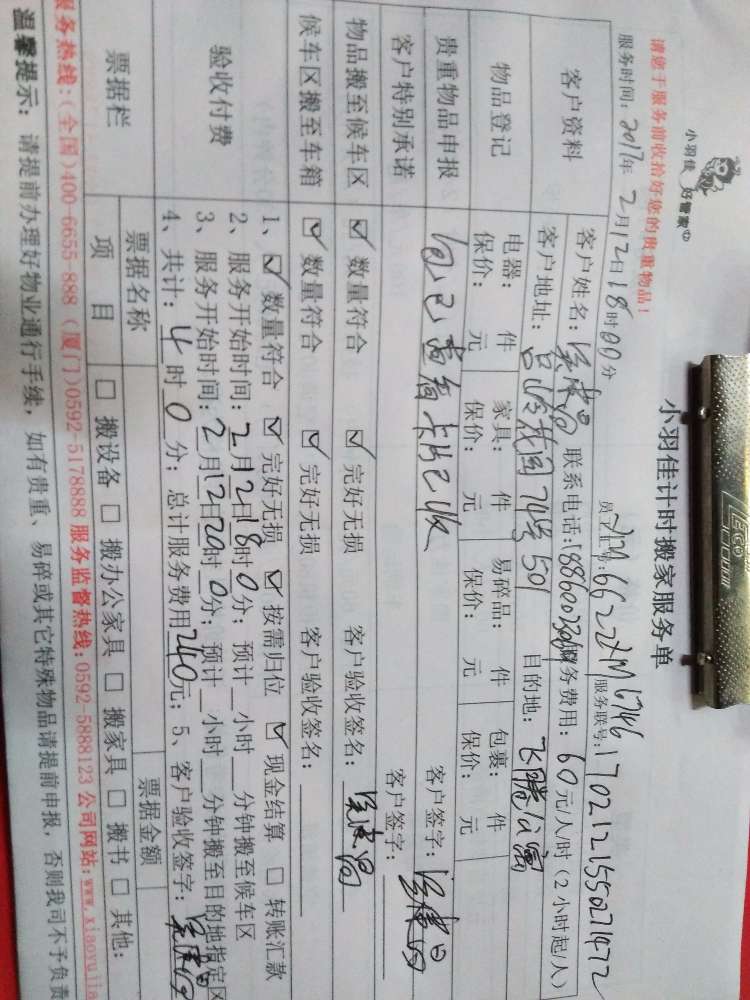 小羽佳 好管家
小羽佳计时搬家服务单
请您于服务前收拾好您的贵重物品！
员工工号：6622 服务联号：170212155021472
服务时间：2017年2月12日18时00分
客户资料
客户姓名： 联系电话： 服务费用：60元/人/时（2小时起/人）
客户地址：花园74号501 目的地：飞腾公寓
物品登记
电器： 件 家具： 件 易碎品： 件 包裹： 件
保价： 元 保价： 元 保价： 元 保价： 元
贵重物品申报 卡片已收 客户签字：
客户特别承诺 客户签字：
物品搬至候车区 ☑ 数量符合 ☑ 完好无损 客户验收签名：
候车区搬至车箱 ☑ 数量符合 ☑ 完好无损 客户验收签名：
验收付费
1、☑ 数量符合 ☑ 完好无损 ☑ 按需归位 ☑ 现金结算 □ 转账汇款
2、服务开始时间：2月12日18时0分；预计 小时 分钟搬至候车区
3、服务开始时间：2月12日20时0分；预计 小时 分钟搬至目的地指定区
4、共计：4时0分；总计服务费用240元；5、客户验收签字：
票据栏
票据名称 票据金额
项目 □ 搬设备 □ 搬办公家具 □ 搬家具 □ 搬书 □ 其他：
服务热线：（全国）400-6655-888（厦门）0592-5178888 服务监督热线：0592-5888123 公司网站：www.xiaoyujia
温馨提示：请提前办理好物业通行手续，如有贵重、易碎或其它特殊物品请提前申报，否则我司不予负责